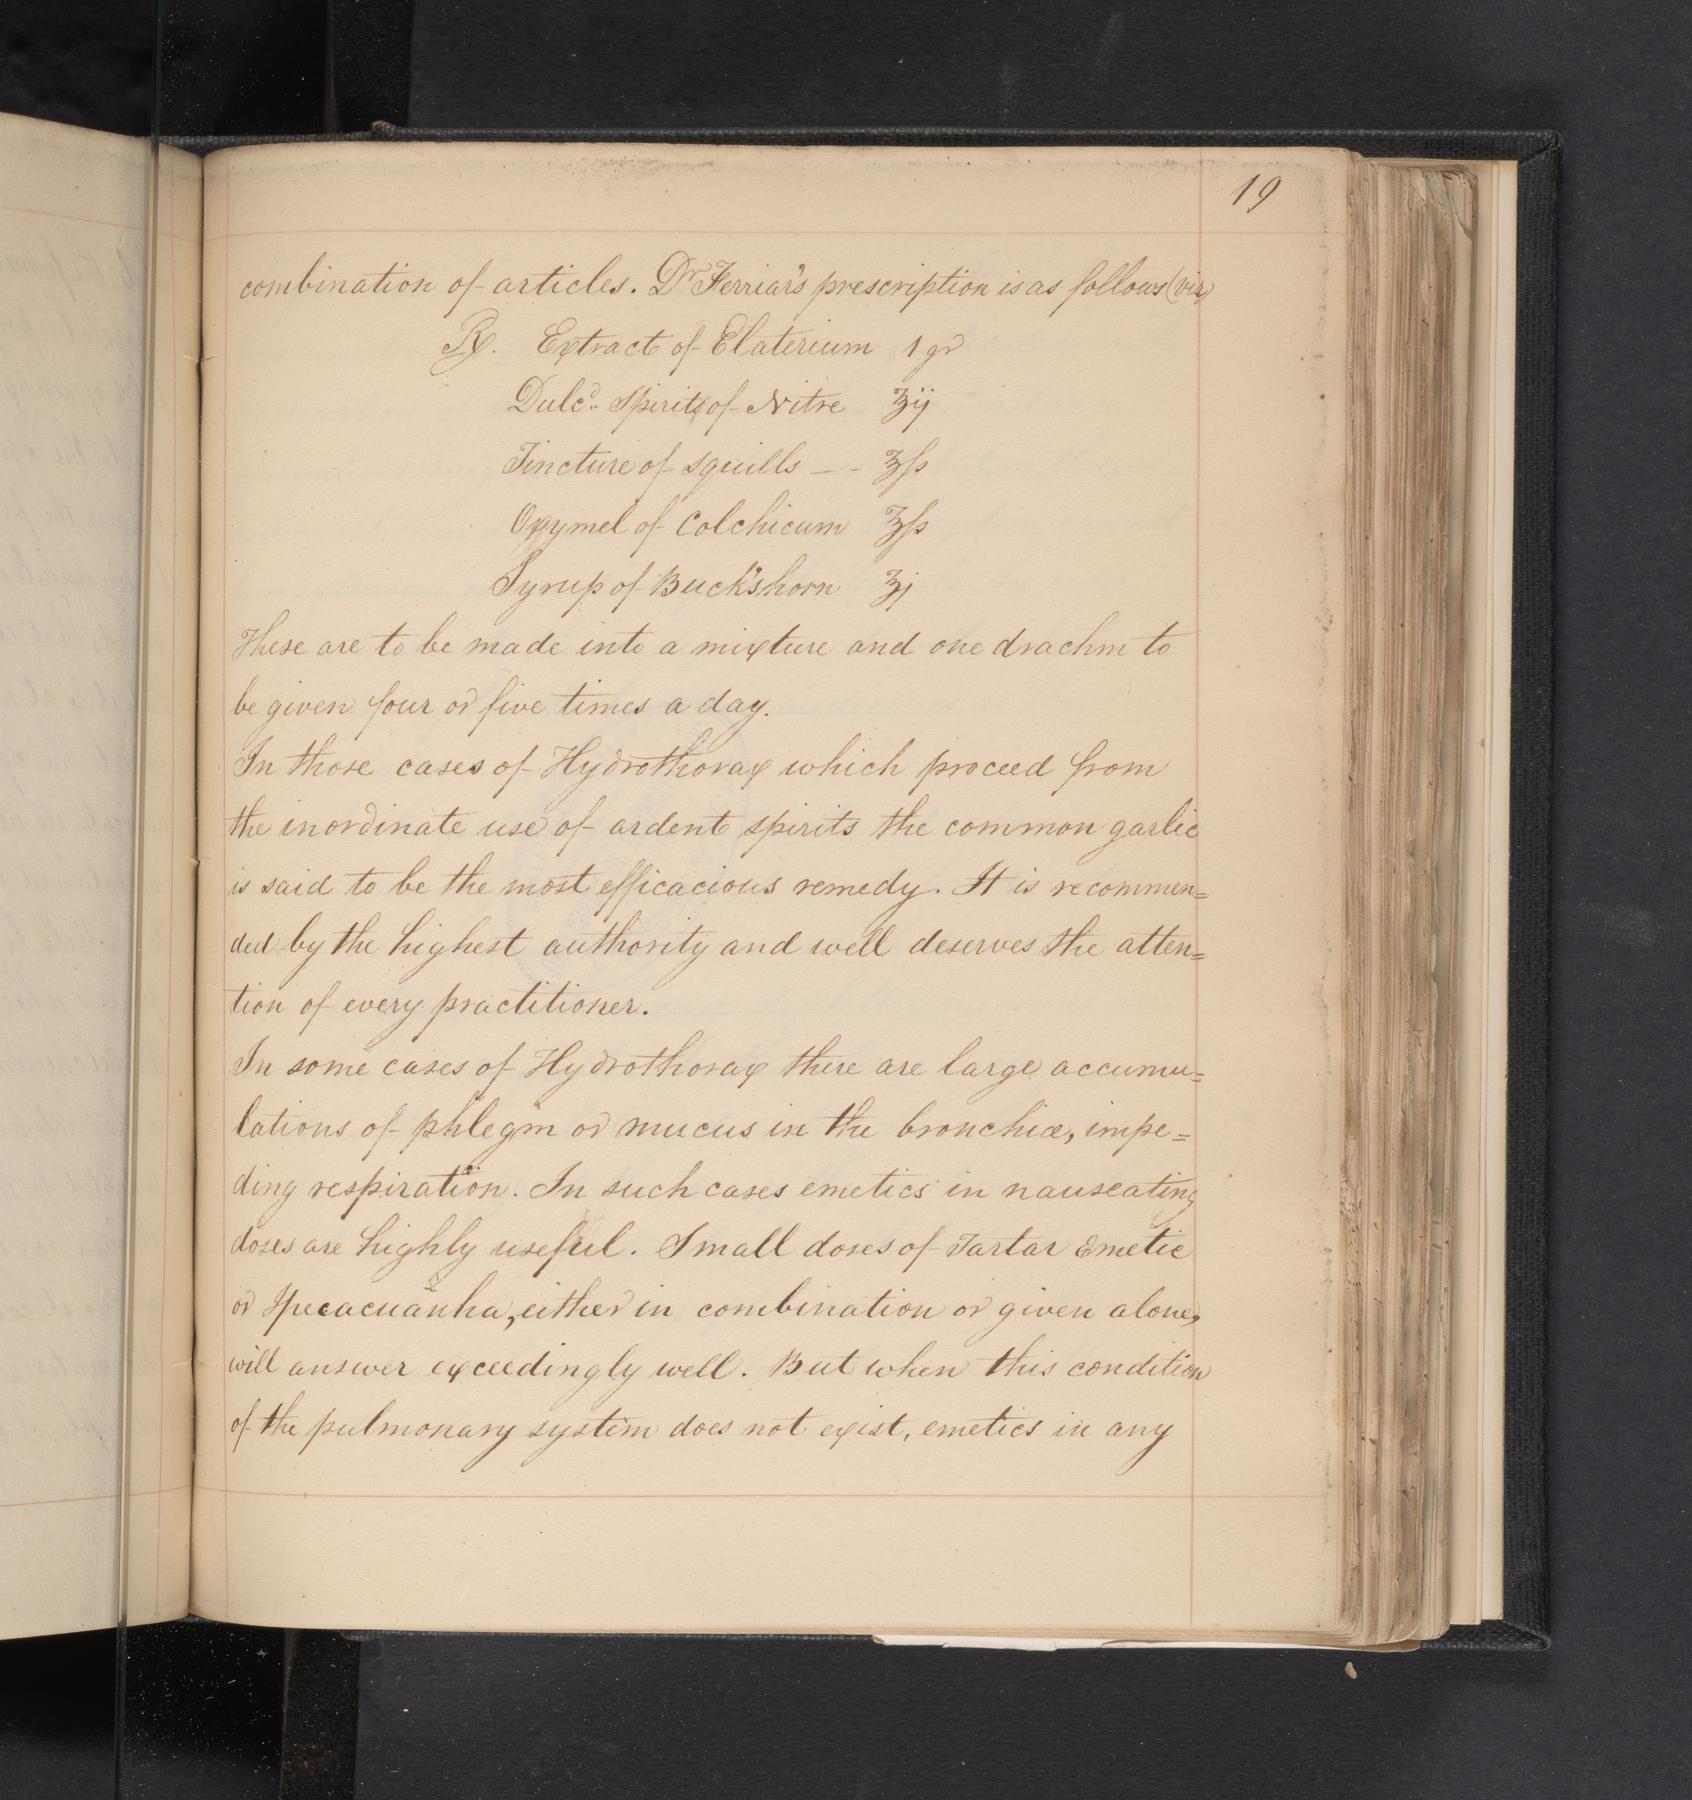 19
combination of articles. Dr Ferriar's prescription is as follows (viz)
℞. Extract of Elaterium 1 gr
Dulcd. Spirits of Nitre ʒij
Tincture of Squills – - ʒſs
Oxymel of Colchicum ʒſs
Syrup of Buck'shorn ʒj
These are to be made into a mixture and one drachm to
be given four or five times a day.
In those cases of Hydrothorax which proceed from
the inordinate use of ardent spirits the common garlic
is said to be the most efficacious remedy. It is recommen=
ded by the highest authority and well deserves the atten=
tion of every practitioner.
In some cases of Hydrothorax there are large accumu=
lations of phlegm or mucus in the bronchiæ, impe=
ding respiration. In such cases emetics in nauseating
doses are highly useful. Small doses of Tartar Emetic
or Ipecacuanha, either in combination or given alone,
will answer exceedingly well. But when this condition
of the pulmonary system does not exist, emetics in any